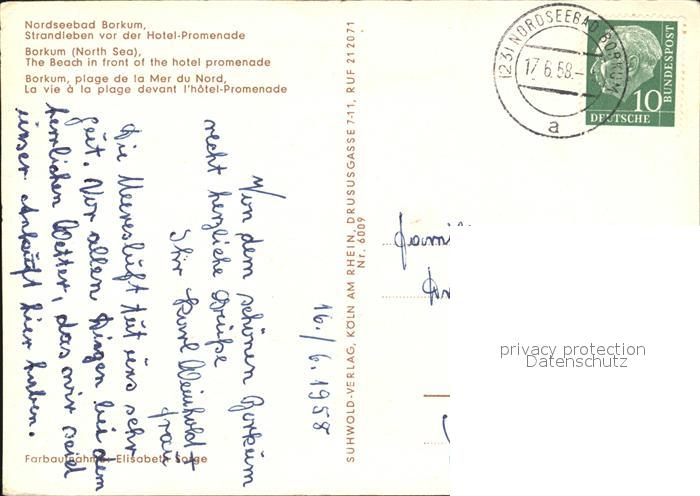 Nordseebad Borkum,
Strandleben vor der Hotel-Promenade
Borkum (North Sea),
The Beach in front of the hotel promenade
Borkum, plage de la Mer du Nord,
La vie à la plage devant l'hôtel-Promenade
(23) NORDSEEBAD BORKUM
17.6.58.-
a
10
DEUTSCHE
BUNDESPOST
16./6.1958
Von dem schönen Borkum
recht herzliche Grüße
Ihr Karl Weinholdt
Frau
Die Meeresluft tut uns sehr
gut. Vor allen Dingen bei dem
herrlichen Wetter, das wir seid
unser Ankunft hier haben.
SUHWOLD-VERLAG, KÖLN AM RHEIN, DRUSUSGASSE 7-11, RUF 212071
Nr. 6009
Fami
privacy protection
Datenschutz
Farbaufnahme: Elisabeth Sorge